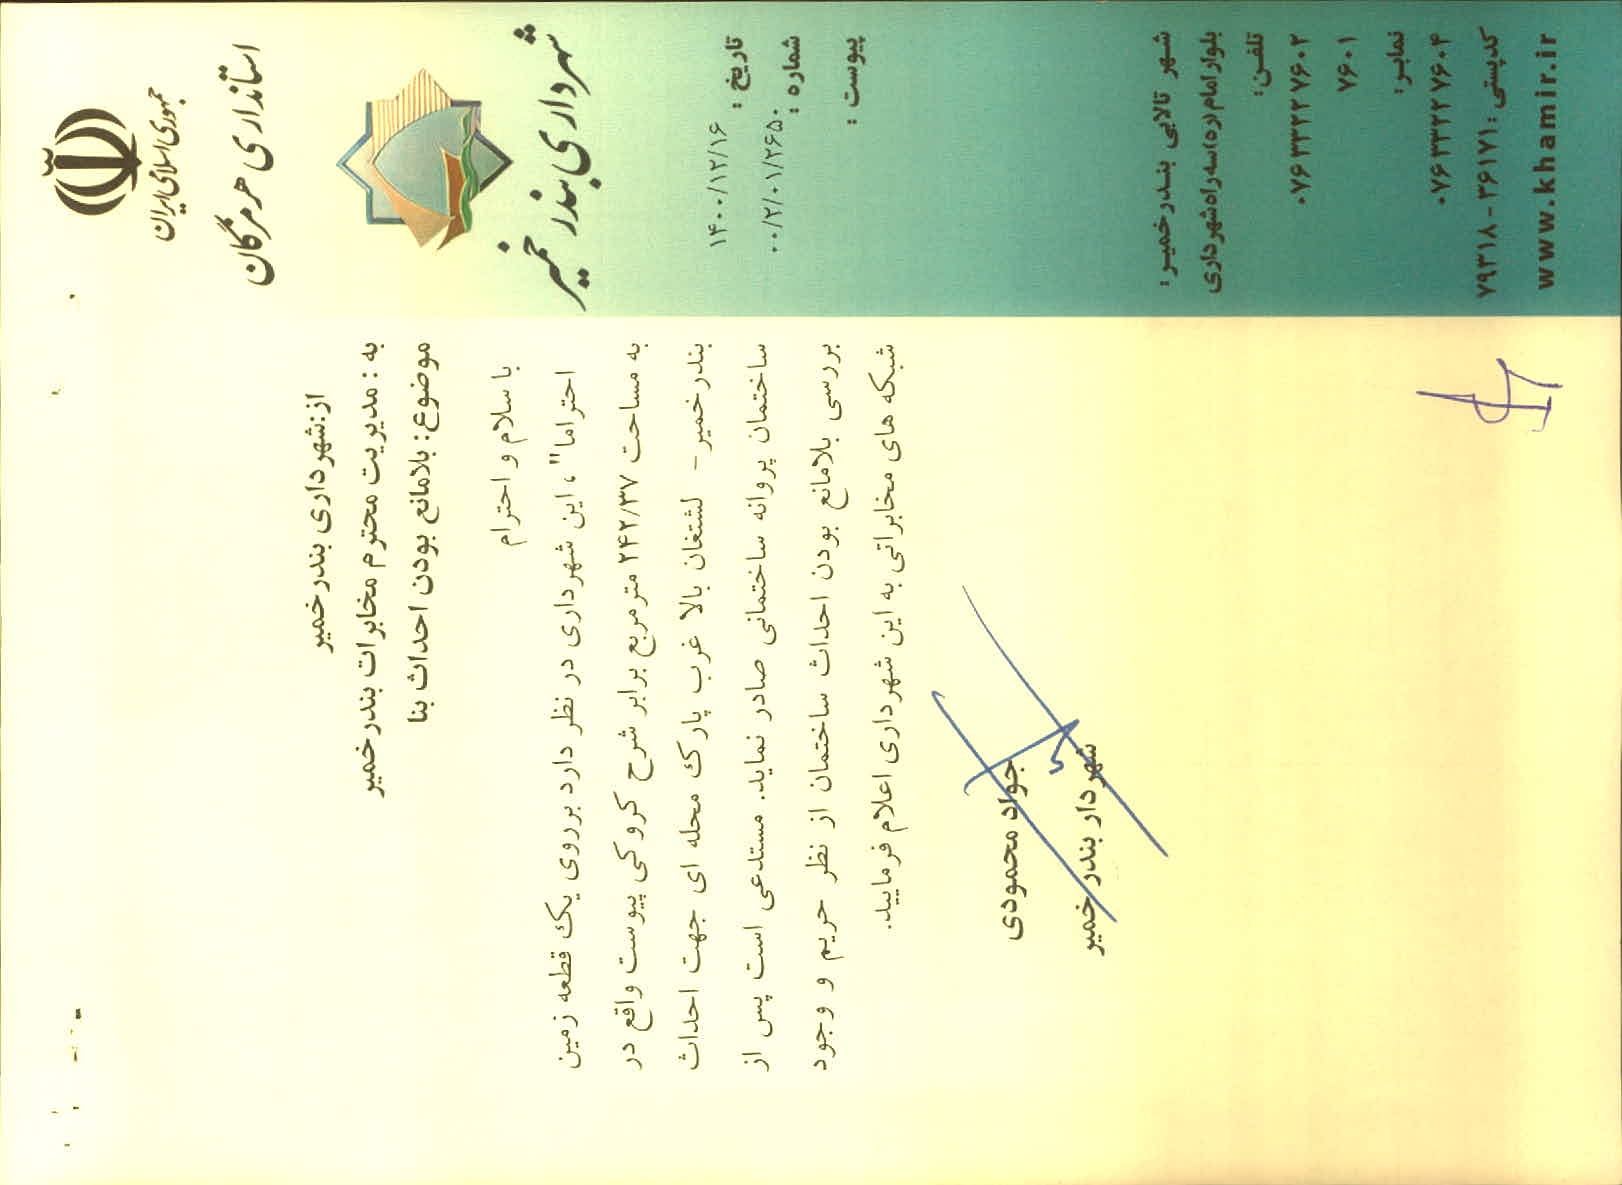 جمهوری اسلامی ایران
استانداری هرمزگان
شهرداری بندر خمیر
تاریخ : ۱۴۰۰/۱۲/۱۶
شماره : ۰۰/۲/۰۱/۲۶۵۰
پیوست :
شهر تالابی بندرخمیر:
بلوار امام(ره)سه راه شهرداری
تلفن:
۰۷۶۳۳۲۲۷۶۰۲
۷۶۰۱
نمابر:
۰۷۶۳۳۲۲۷۶۰۴
کدپستی: ۳۶۱۷۱-۷۹۳۱۸
www.khamir.ir
از:شهرداری بندرخمیر
به : مدیریت محترم مخابرات بندرخمیر
موضوع: بلامانع بودن احداث بنا
با سلام و احترام
احتراما" ، این شهرداری در نظر دارد برروی یک قطعه زمین
به مساحت ۲۴۲/۳۷ مترمربع برابر شرح کروکی پیوست واقع در
بندرخمیر- لشتغان بالا غرب پارک محله ای جهت احداث
ساختمان پروانه ساختمانی صادر نماید. مستدعی است پس از
بررسی بلامانع بودن احداث ساختمان از نظر حریم و وجود
شبکه های مخابراتی به این شهرداری اعلام فرمایید.
جواد محمودی
شهردار بندر خمیر